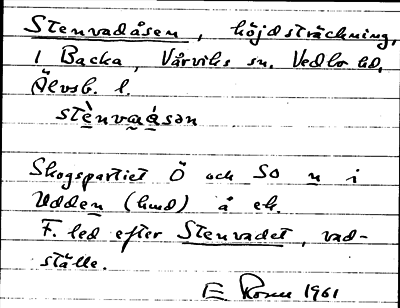 Stenvadåsen, höjdsträckning,
i Backa, Vårviks sn. Vedbo hd,
Älvsb. l.
stènvaåsən
Skogspartiet Ö och SO n i
Udden (hmd) å ek.
F. led efter Stenvadet, vad-
ställe.
E 1961